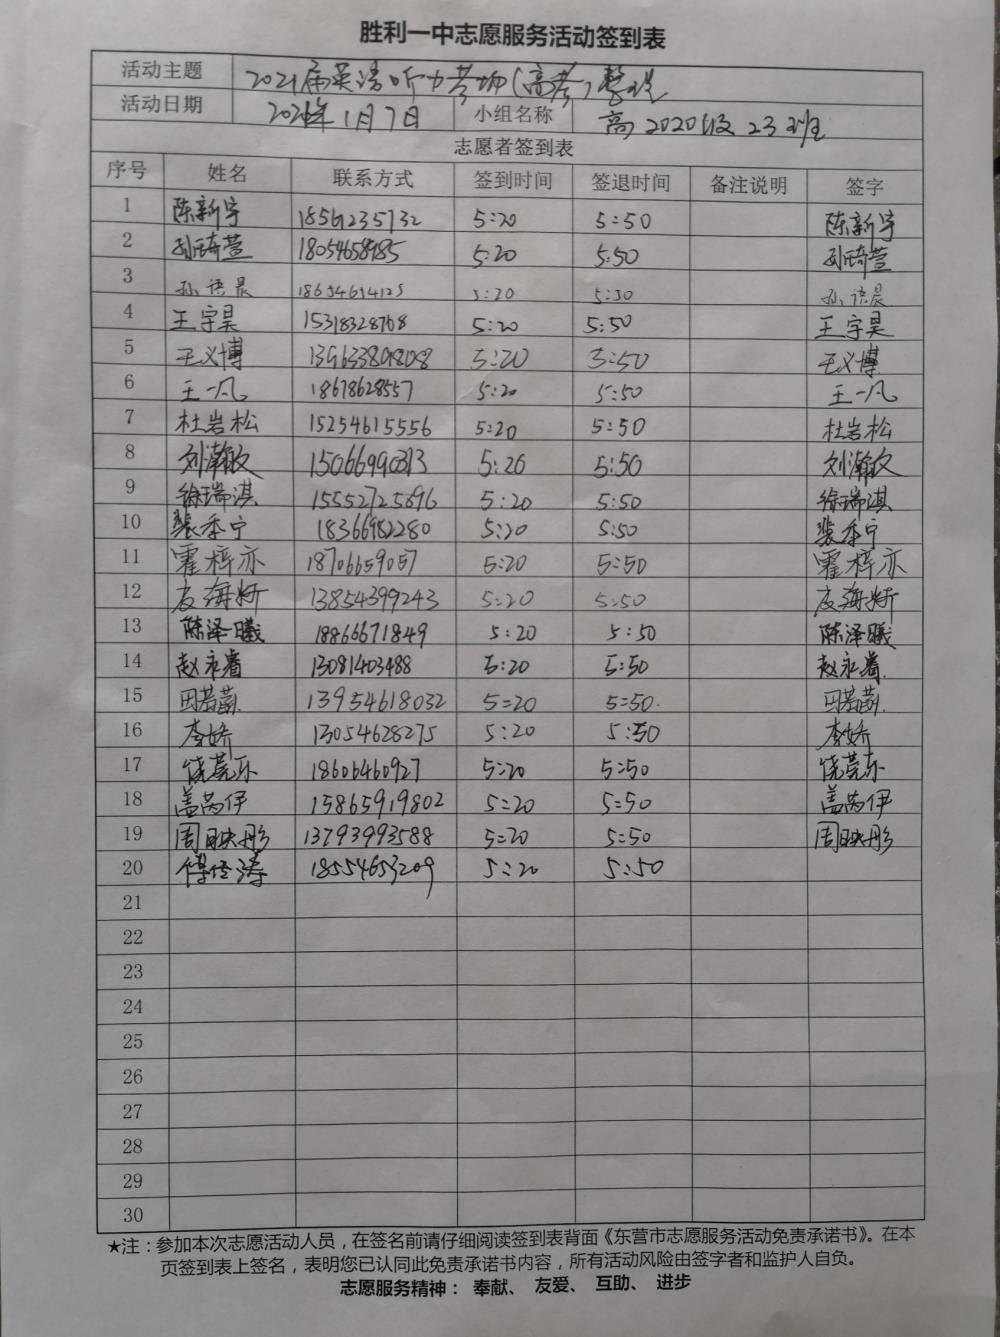 胜利一中志愿服务活动签到表
活动主题 2021届英语听力考场(高考)整理
活动日期 1月7日 小组名称 高2020级23班
志愿者签到表
序号 姓名 联系方式 签到时间 签退时间 备注说明 签字
1 陈新宇 18561235732 5:20 5:50 陈新宇
2 孙琦萱 5:20 5:50 孙琦萱
3 孙语晨 18654614125 5:20 5:50 孙语晨
4 王宇昊 15318328768 5:20 5:50 王宇昊
5 王义博 5:20 5:50 王义博
6 王一凡 18678628557 5:20 5:50 王一凡
7 杜岩松 15254615556 5:20 5:50 杜岩松
8 刘瀚文 15066990313 5:20 5:50 刘瀚文
9 徐瑞淇 15552725696 5:20 5:50 徐瑞淇
10 裴季宁 18366982280 5:20 5:50 裴季宁
11 霍梓亦 18706659057 5:20 5:50 霍梓亦
12 13854399243 5:20 5:50
13 陈泽曦 18866671849 5:20 5:50 陈泽曦
14 赵永睿 13081403488 5:20 5:50 赵永睿
15 13954618032 5:20 5:50
16 李娇 13054628275 5:20 5:50 李娇
17 饶莞东 18606460927 5:20 5:50 饶莞东
18 盖芮伊 15865919802 5:20 5:50 盖芮伊
19 周映彤 13793993588 5:20 5:50 周映彤
20 18554653209 5:20 5:50
21
22
23
24
25
26
27
28
29
30
★注：参加本次志愿活动人员，在签名前请仔细阅读签到表背面《东营市志愿服务活动免责承诺书》。在本
页签到表上签名，表明您已认同此免责承诺书内容，所有活动风险由签字者和监护人自负。
志愿服务精神： 奉献、 友爱、 互助、 进步